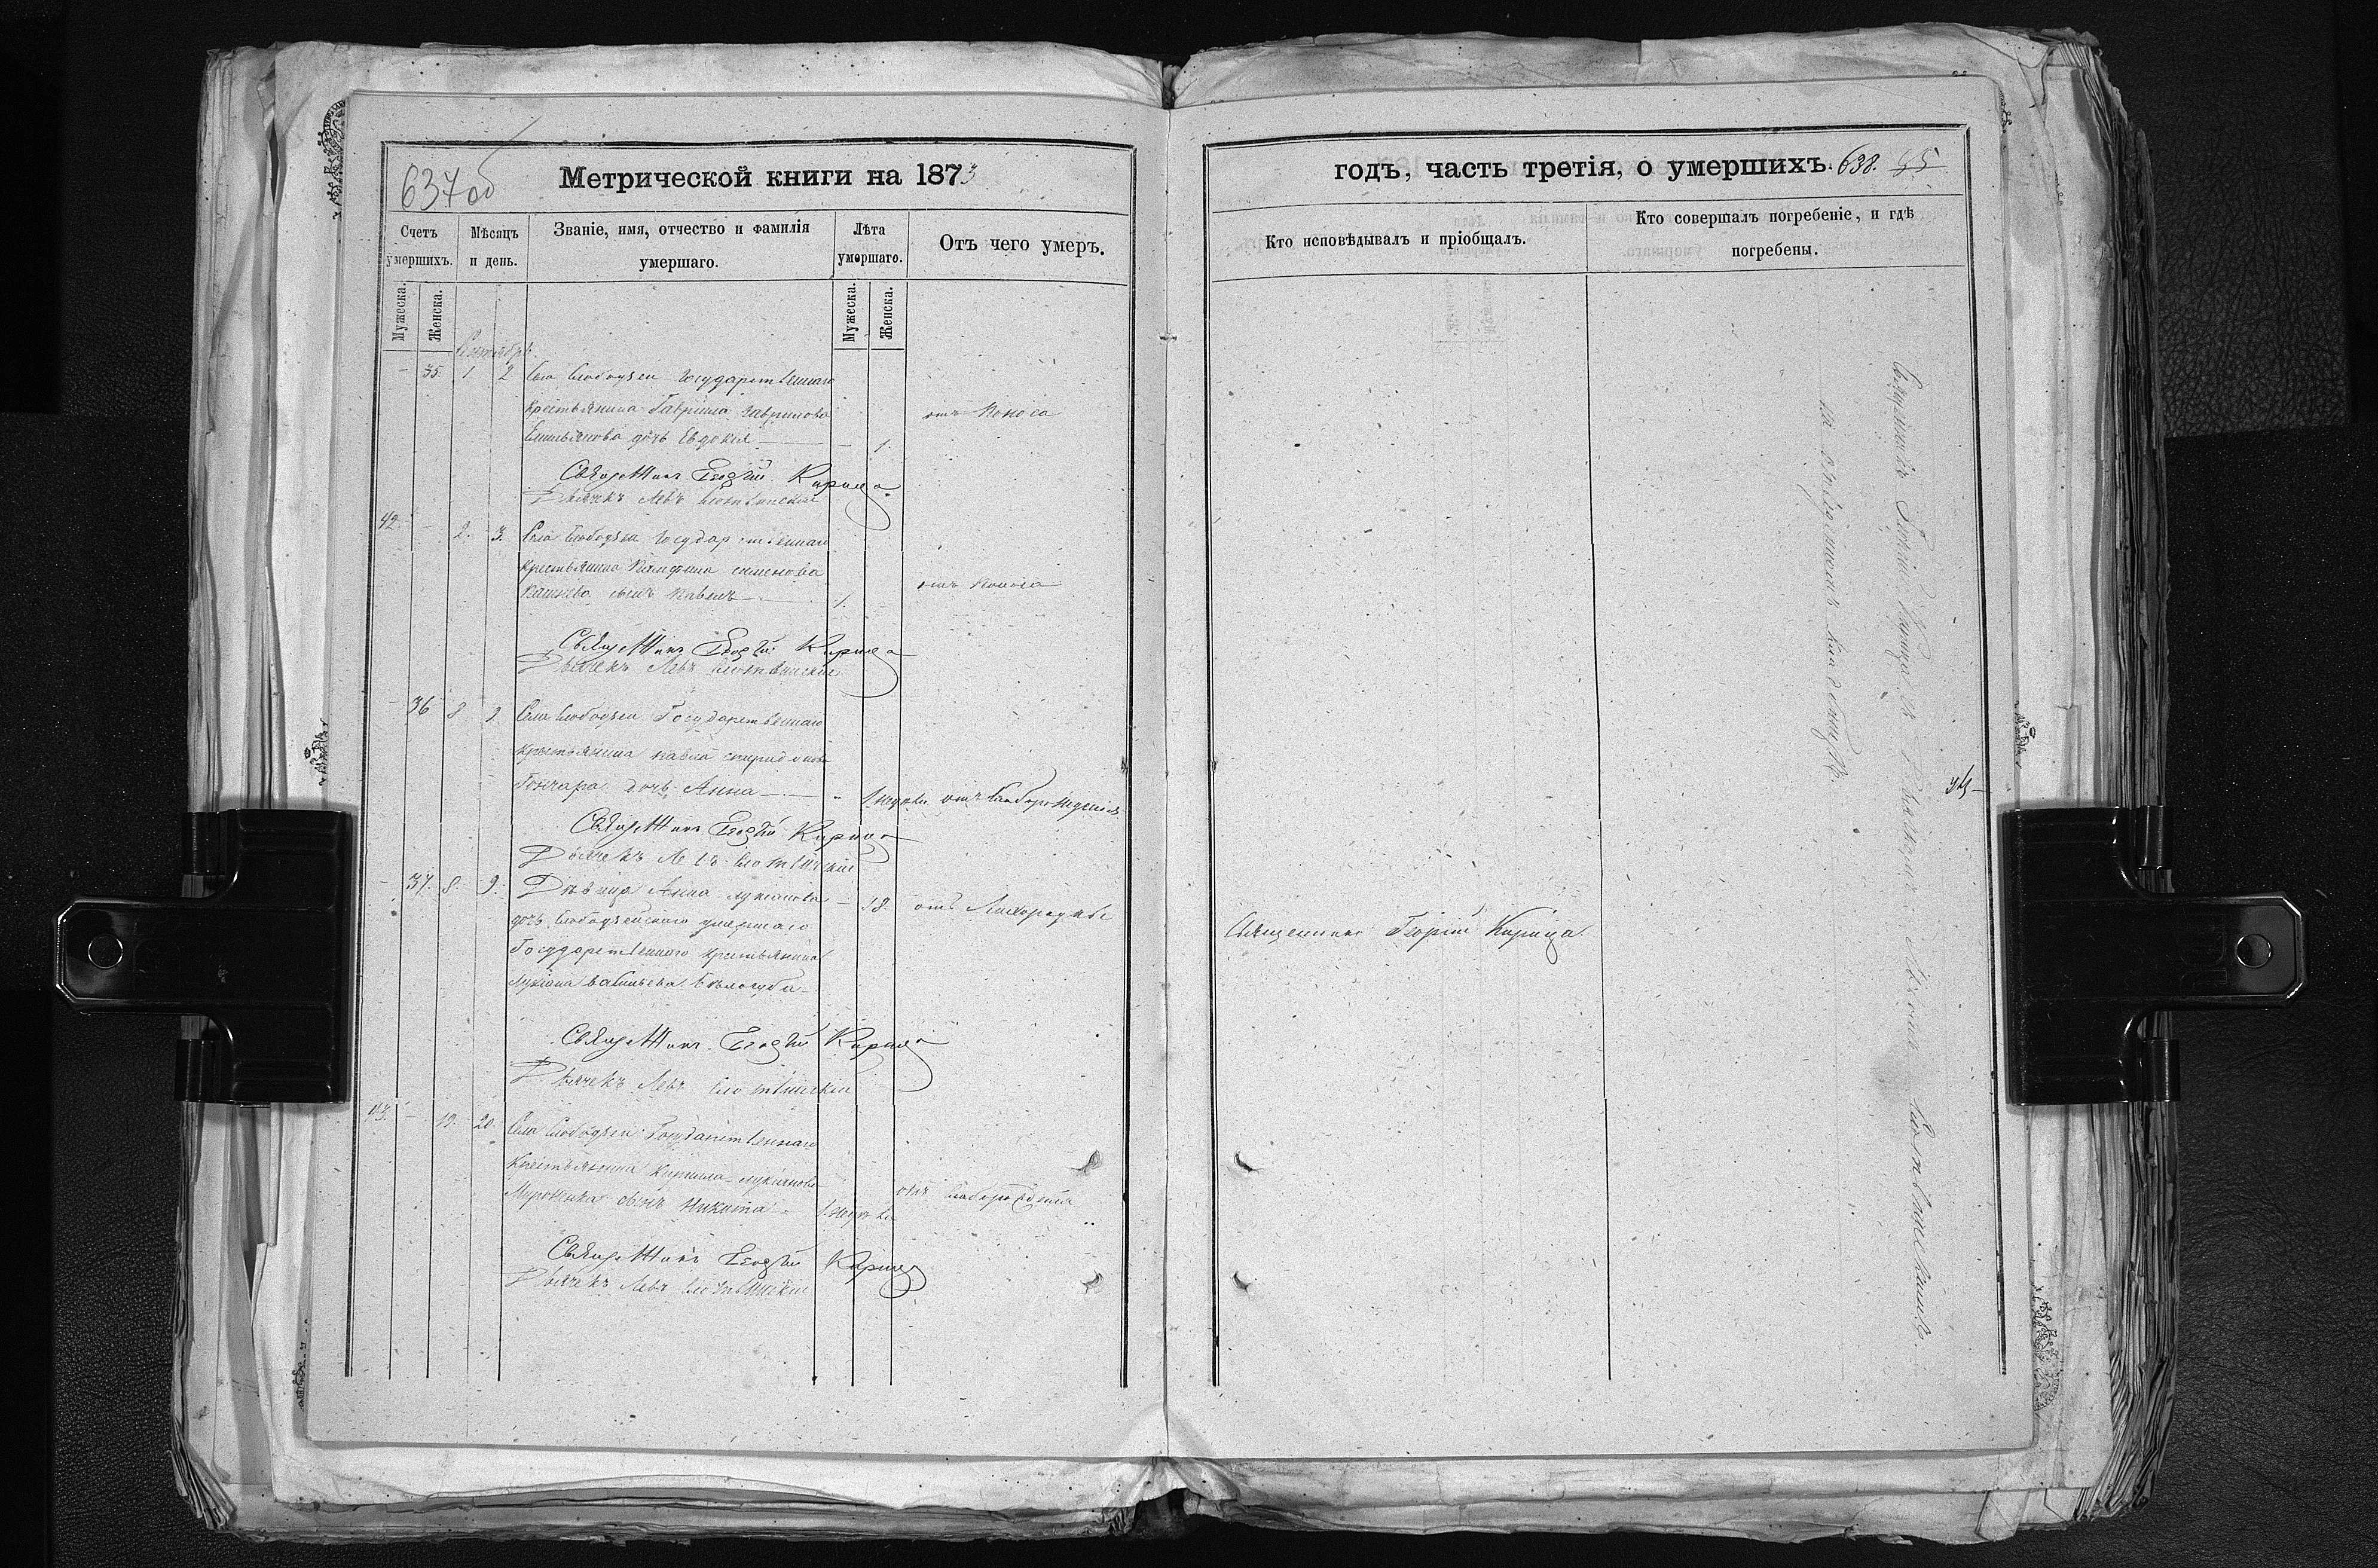 637 об
Метрической книги на 1873
Счетъ умершихъ.
Мѣсяцъ и день.
Званіе, имя, отчество и фамилія умершаго.
Лѣта умершаго.
Отъ чего умеръ.
Мужеска.
Женска.
Мужеска.
Женска.
Сентябрь.
- 35. 1. 2 Села Слободзеи Государственнаго
крестьянина Гавріила Гаврилова отъ поноса
Емильянова дочь Евдокія - 1.
Священникъ Георгій Кирица.
Дьячекъ Левъ
42. - 2. 3. Села Слободзеи Государственнаго
крестьянина Памфила Семенова отъ поноса
сынъ Павелъ 1. -
Священникъ Георгій Кирица
Дьячекъ Левъ
- 36 8 9 Села Слободзеи Государственнаго
крестьянина Павла Спиридонова
Гончара дочь Анна - 1 недѣли отъ слаборожденія
Священникъ Георгій Кирица
Дьячекъ Левъ
- 37. 8. 9. Дѣвица Анна Лукіянова - 18. отъ Лихорадки
дочь Слободзейскаго умершаго
Государственнаго крестьянина
Лукіяна Васильева Бѣлогуба
Священникъ Георгій Кирица
Дьячекъ Левъ
43. - 19. 20. Села Слободзеи Государственнаго
крестьянина Кирилла Лукіянова
Мироненка сынъ Никита 1 недѣли отъ слаборожденія
Священникъ Георгій Кирица
Дьячекъ Левъ
годъ, часть третія, о умершихъ. 638. 35
Кто исповѣдывалъ и пріобщалъ.
Кто совершалъ погребеніе, и гдѣ погребены.
Священникъ Георгій Кирица
Священникъ Георгій Кирица съ Дьячкомъ Львомъ
на приходскомъ кладбищѣ.